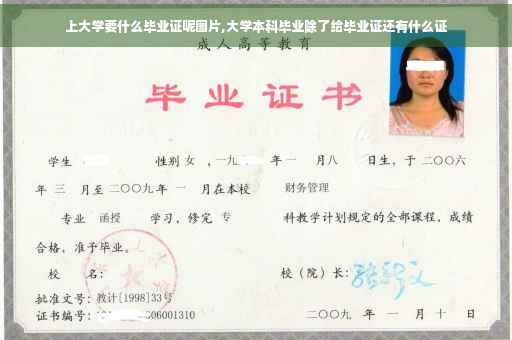 上大学要什么毕业证呢图片,大学本科毕业除了给毕业证还有什么证
成人高等教育
毕业证书
学生 性别 女 ,一九 年 一 月 八 日生，于 二〇〇六
年 三 月至 二〇〇九 年 一 月在本校 财务管理
专业 函授 学习，修完 专 科教学计划规定的全部课程，成绩
合格，准予毕业。
校 名： 校（院）长：
批准文号：教计[1998]33号
证书编号： 06001310 二〇〇九 年 一 月 十 日